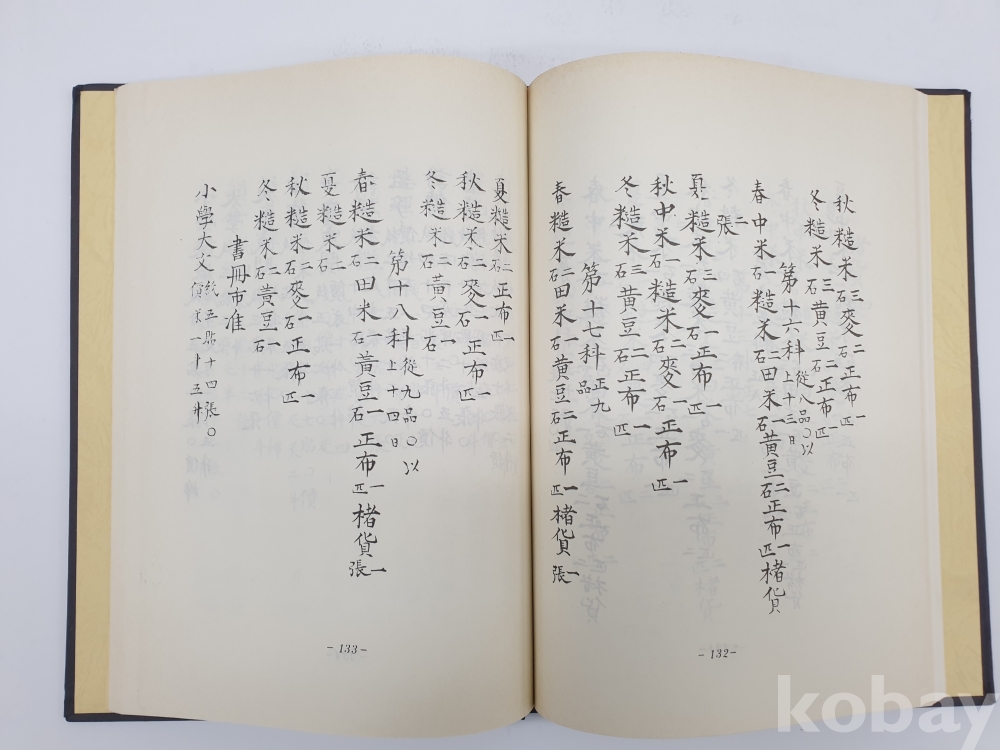 秋糙米三石麥二石正布一匹
冬糙米三石黃豆二石正布一匹
第十六科從八品○以上十三日
春中米一石糙米二石田米一石黃豆二石正布一匹楮貨
二張
夏糙米三石麥一石正布一匹
秋中米一石糙米二石麥一石正布一匹
冬糙米三石黃豆二石正布一匹
第十七科正九品
春糙米二石田米一石黃豆二石正布一匹楮貨一張
- 132 -
夏糙米二石正布一匹
秋糙米二石麥一石正布一匹
冬糙米二石黃豆一石
第十八科從九品○以上十四日
春糙米二石田米一石黃豆一石正布一匹楮貨一張
夏糙米二石
秋糙米二石麥一石正布一匹
冬糙米二石黃豆一石
書冊市准
小學大文紙五貼十四張○價米一斗五升
- 133 -
kobay